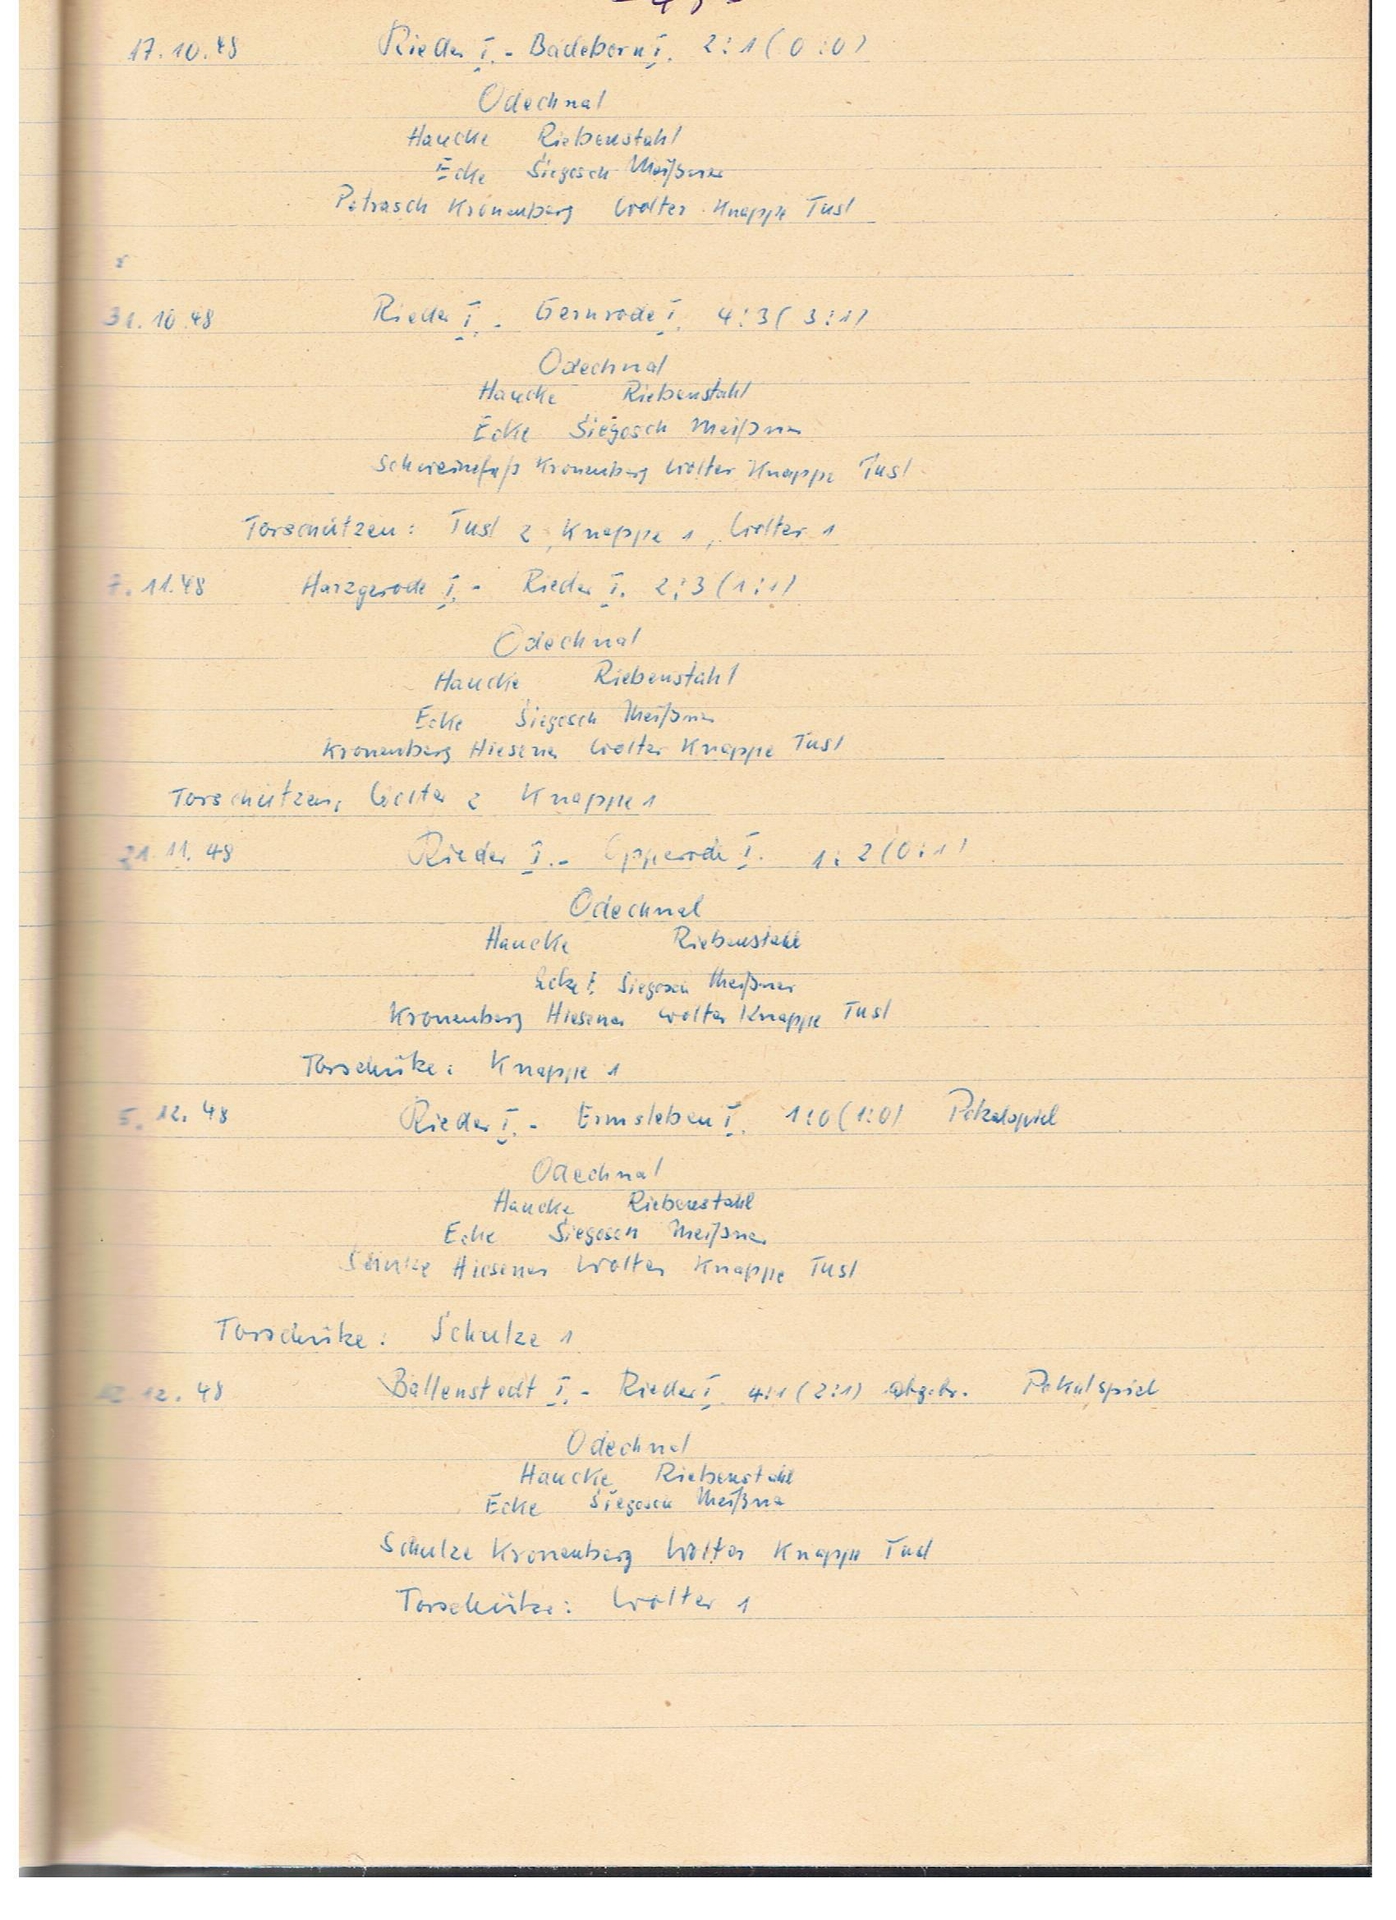 17.10.48 Rieder I. - Badeborn I. 2:1 (0:0)
Odechnal
Haucke Riebenstahl
Ecke Siegosch Meißner
Petrasch Kronenberg Wolter Knappe Tusl
31.10.48 Rieder I. - Gernrode I. 4:3 (3:1)
Odechnal
Haucke Riebenstahl
Ecke Siegosch Meißner
Schweinefuß Kronenberg Wolter Knappe Tusl
Torschützen: Tusl 2, Knappe 1, Wolter 1
7.11.48 Harzgerode I. - Rieder I. 2:3 (1:1)
Odechnal
Haucke Riebenstahl
Ecke Siegosch Meißner
Kronenberg Hiesener Wolter Knappe Tusl
Torschützen: Wolter 2 Knappe 1
21.11.48 Rieder I. - Opperode I. 1:2 (0:1)
Odechnal
Haucke Riebenstahl
Ecke E. Siegosch Meißner
Kronenberg Hiesener Wolter Knappe Tusl
Torschütze: Knappe 1
5.12.48 Rieder I. - Ermsleben I. 1:0 (1:0) Pokalspiel
Odechnal
Haucke Riebenstahl
Ecke Siegosch Meißner
Hiesener Wolter Knappe Tusl
Torschütze: Schulze 1
12.12.48 Ballenstedt I. - Rieder I. 4:1 (2:1) abgebr. Pokalspiel
Odechnal
Haucke Riebenstahl
Ecke Siegosch Meißner
Schulze Kronenberg Wolter Knappe Tusl
Torschütze: Wolter 1